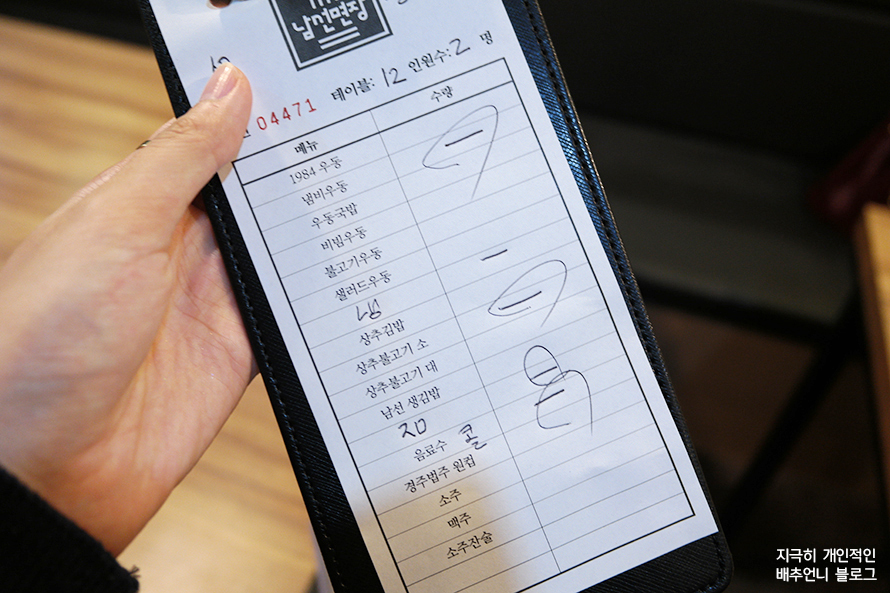 남선면장
테이블: 12 인원수: 2 명
04471
메뉴 수량
1984 우동 一
냄비우동
우동국밥
비빔우동
불고기우동
샐러드우동 一
상추김밥 一
상추불고기 소
상추불고기 대
남선 생김밥 一
음료수 콜 一
경주법주 원컵
소주
맥주
소주잔술
지극히 개인적인
배추언니 블로그